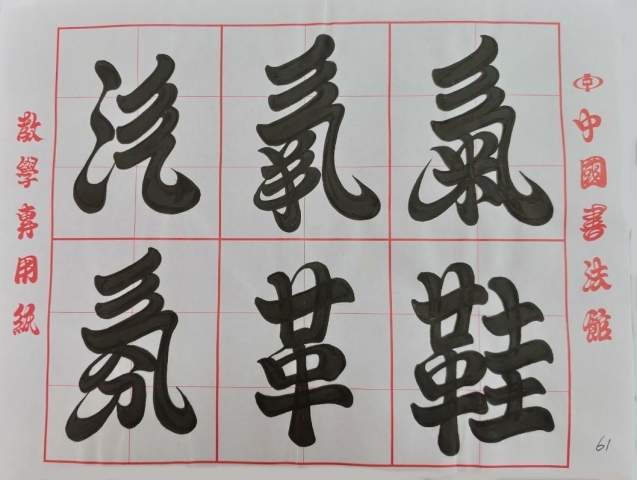 汽氧氣
氛革鞋
中國書法館
教學專用紙
61